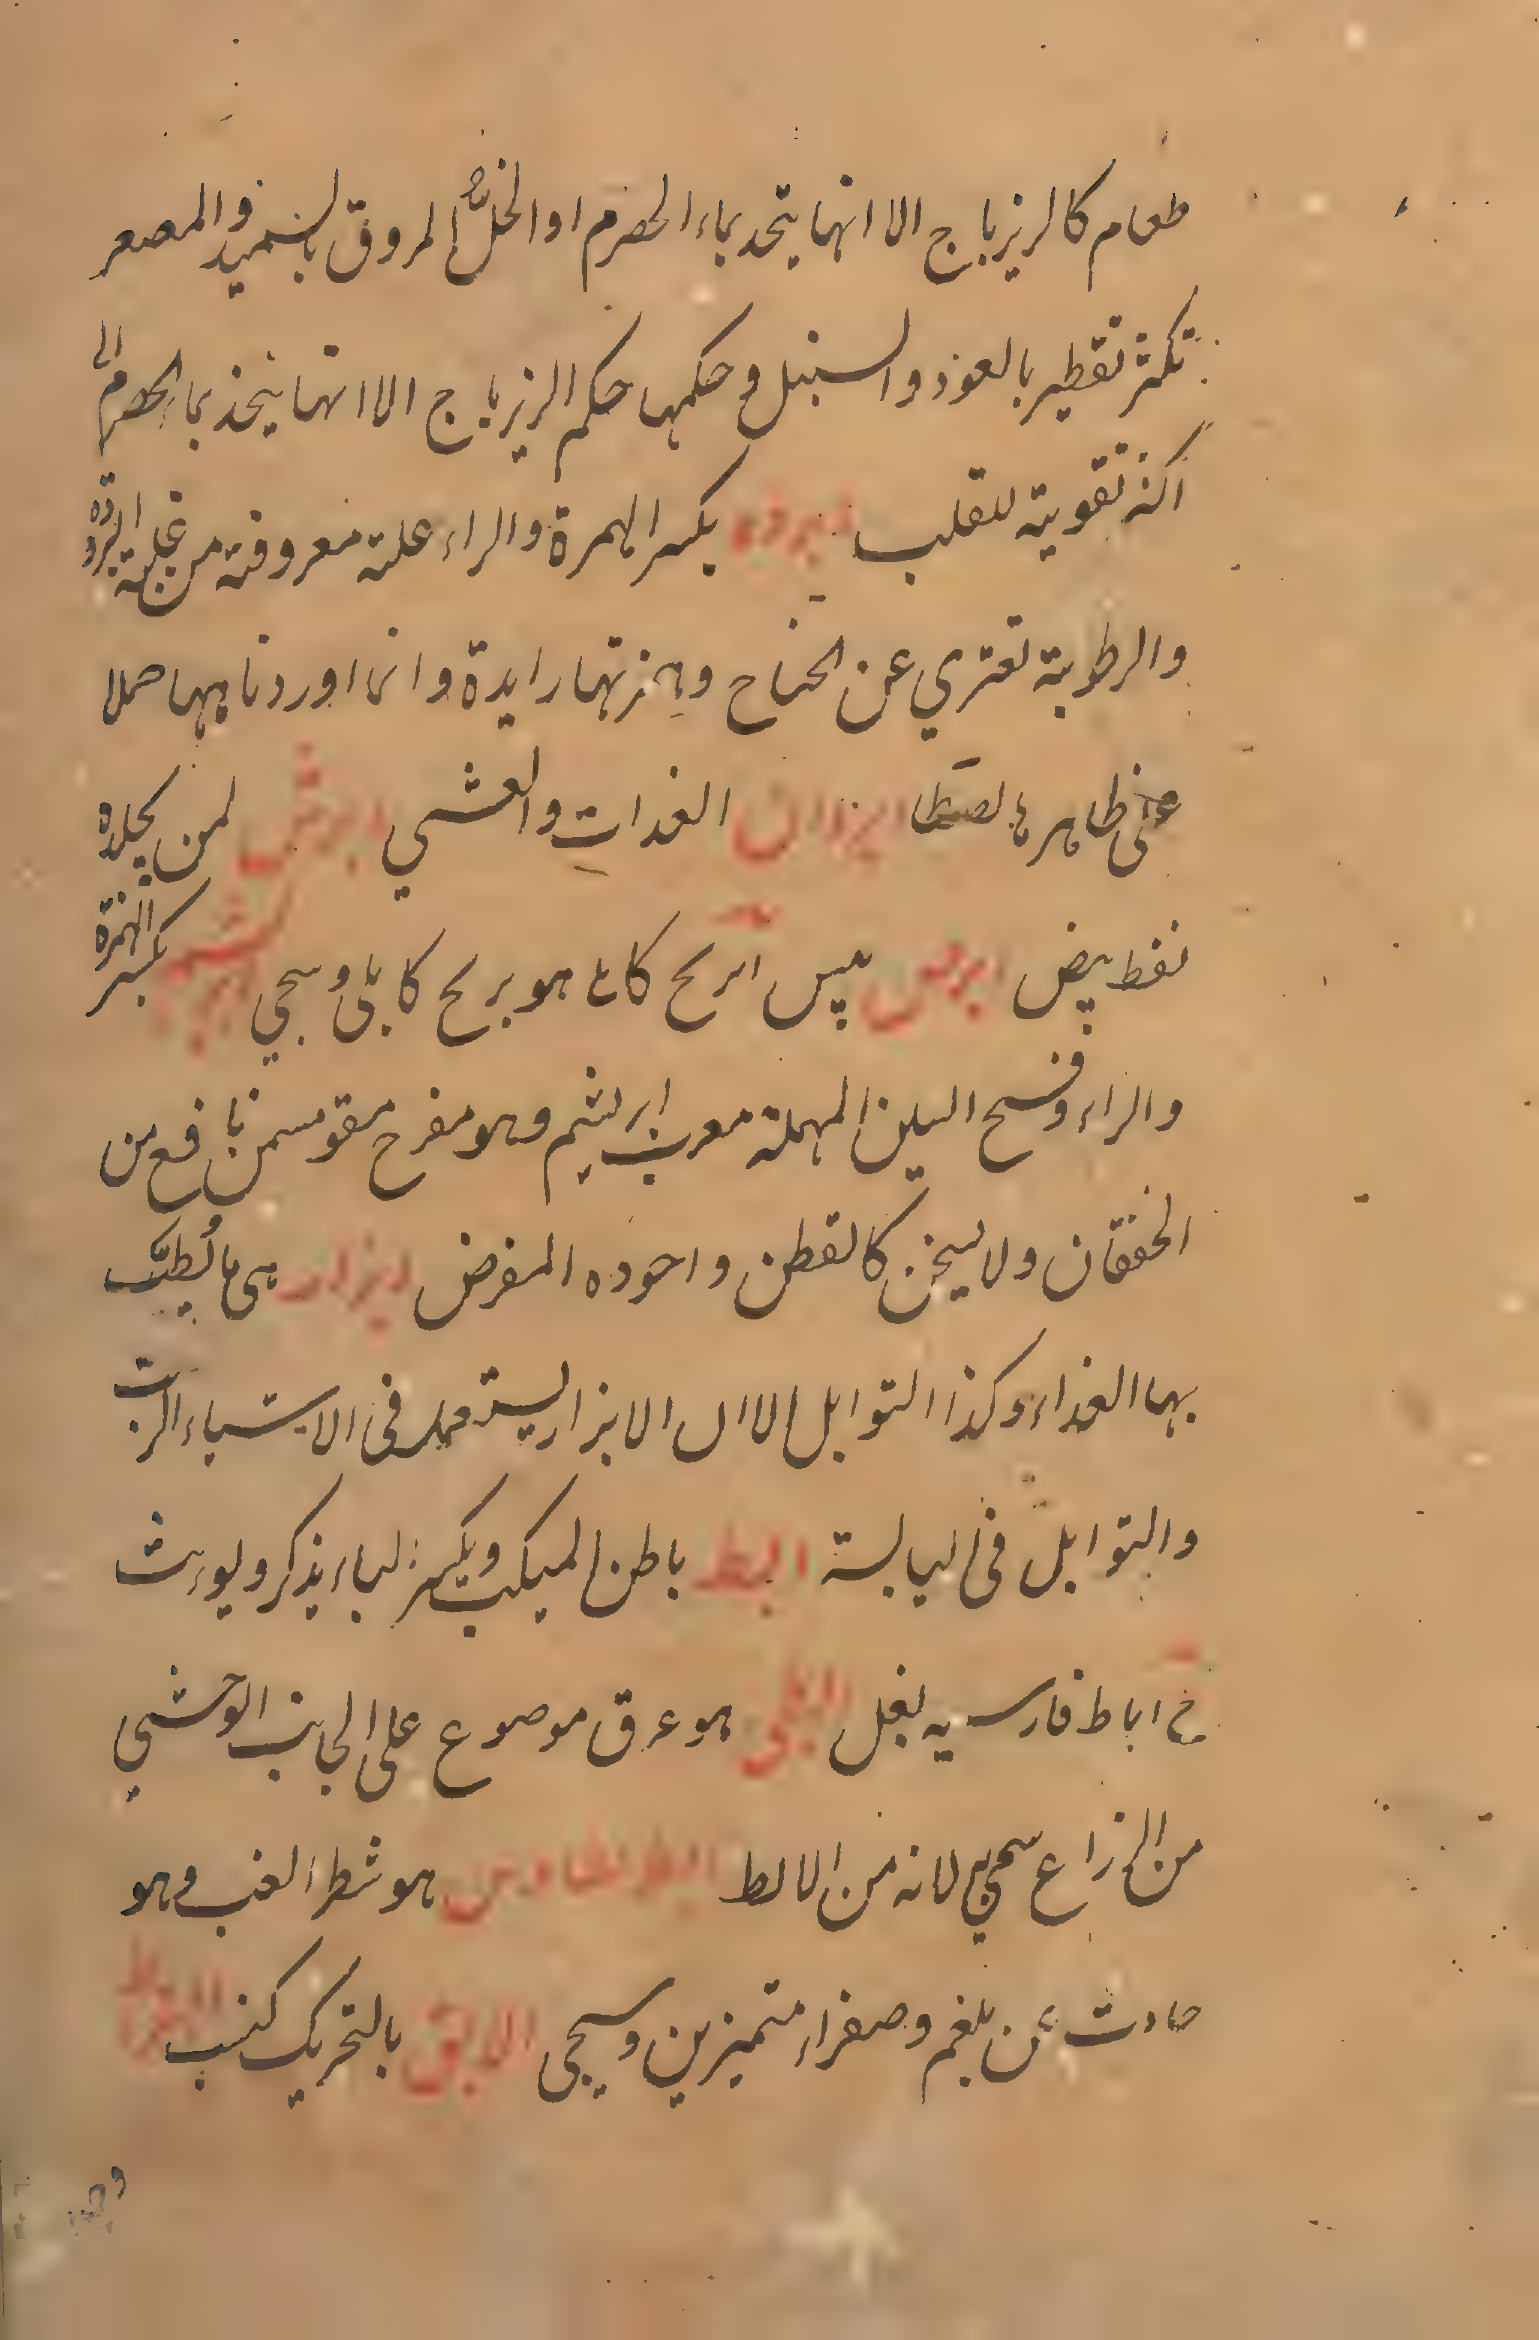 طعام كالزيرباج الا انها يتخذ بماء الحصرم او الخل المروق بالسميد والمصعر
تكثر تقطير بالعود والسنبل وحكمها حكم الزيرباج الا انها يتخذ بماء الحصرم الى
اكثر تقوية للقلب ابردة بكسر الهمزة والراء علة معروفة من غلبة البرودة
والرطوبة تعتري عن الجناح وهمزتها زايدة وانما اوردناهها حملا
على ظاهرها لفظا ابردان الغدات والعشي ابرش لمن بجلده
نقط بيض ابرص بيس ابرنج كابلى هو برنج كابلى وسيجي ابريسم بكسر الهمزة
والراء وفتح السين المهملة معرب ابريشم وهو مفرح مقو مسمن نافع من
الخفقان ولا يسخن كالقطن واجوده المقرض ابزار هى ما يطيب
بها الغذاء وكذا التوابل الا ان الابزار يستعمل فى الاشياء الرطبة
والتوابل فى اليابسة ابط باطن المنكب وبكسر الباء يذكر ويؤنث
ج اباط فارسيه بغل ابطى هو عرق موضوع على الجانب الوحشي
من الذراع سمي به لانه من الابط ابطيطاوس هو شطر الغب وهو
حادث عن بلغم وصفراء متميزين وسيجى الابق بالتحريك كنب